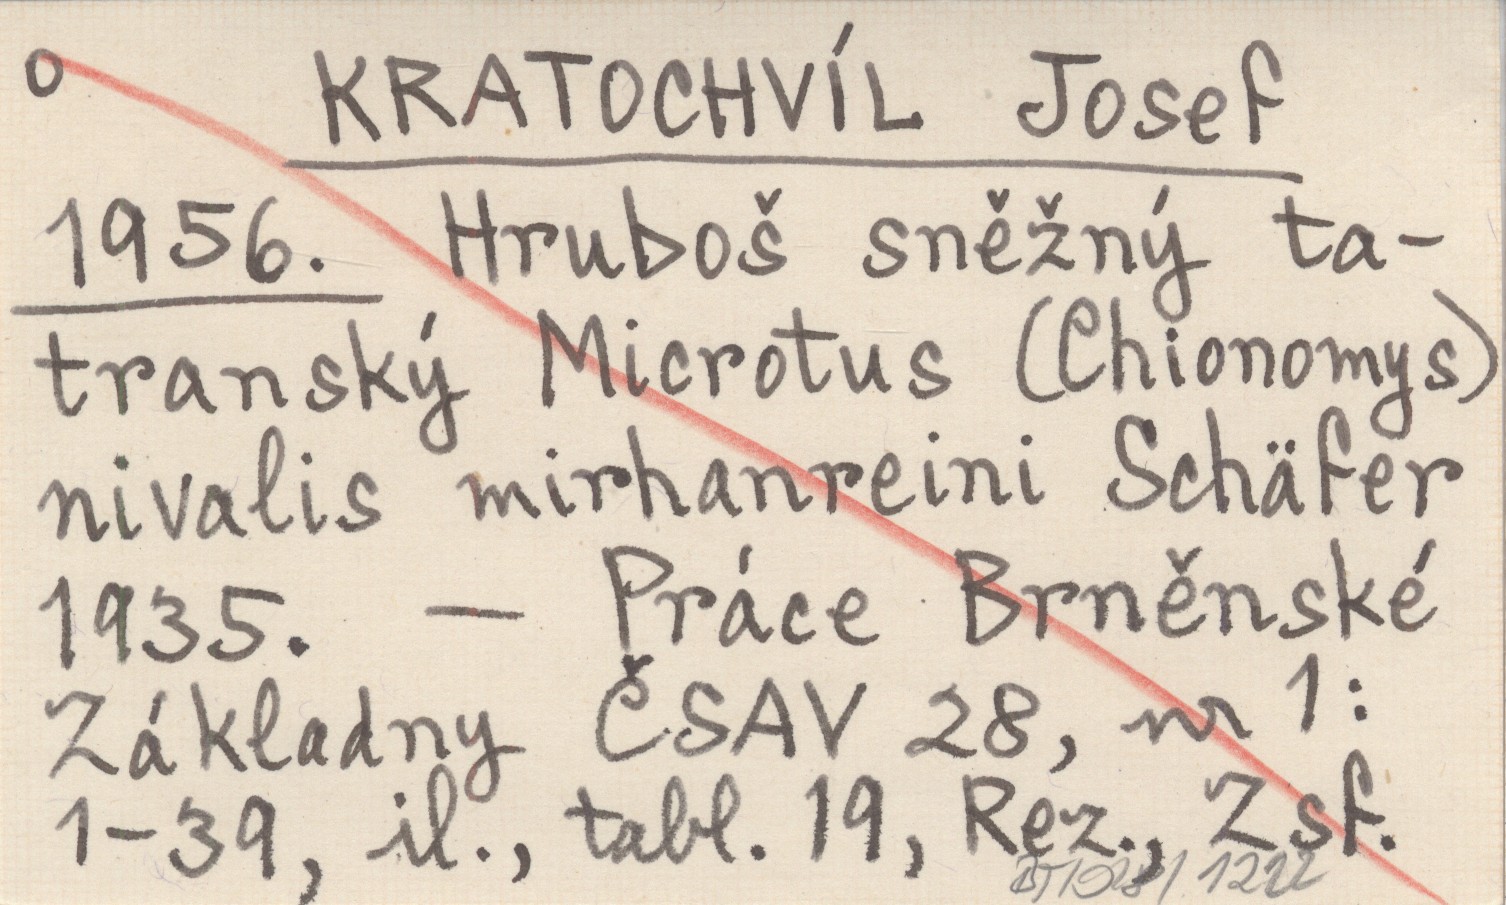 o KRATOCHVÍL Josef
1956. Hruboš sněžný ta-
transký Microtus (Chionomys)
nivalis mirhanreini Schäfer
1935. — Práce Brněnské
Základny ČSAV 28, nr 1:
1-39, il., tabl. 19, Rez., Zsf.
1222